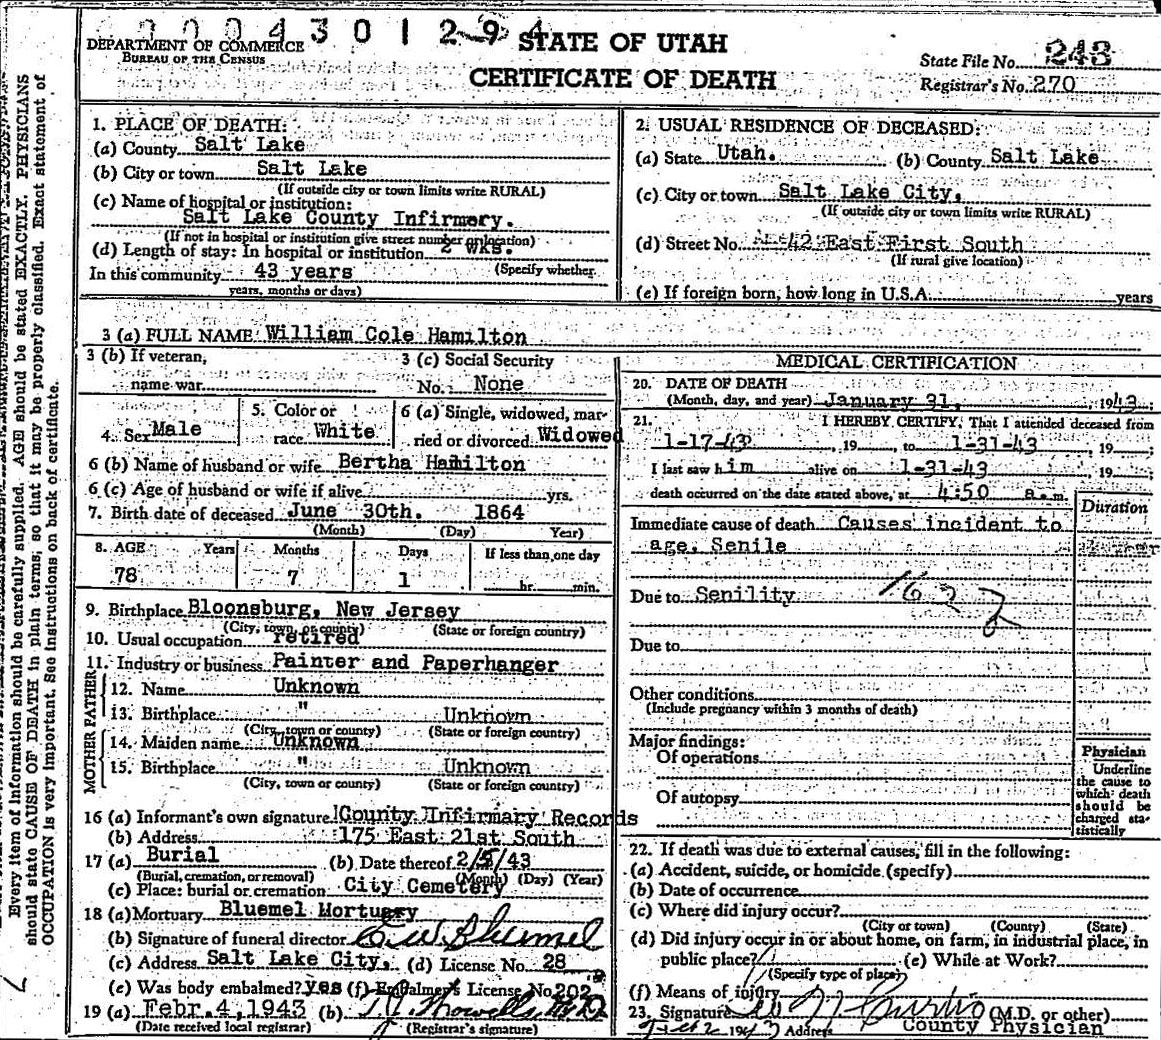 3 0 0 4 3 0 1 2 9 4
DEPARTMENT OF COMMERCE
BUREAU OF THE CENSUS
STATE OF UTAH
CERTIFICATE OF DEATH
State File No. 243
Registrar's No. 270
Every item of information should be carefully supplied. AGE should be stated EXACTLY. PHYSICIANS
should state CAUSE OF DEATH in plain terms, so that it may be properly classified. Exact statement of
OCCUPATION is very important. See instructions on back of certificate.
1. PLACE OF DEATH:
(a) County Salt Lake
(b) City or town Salt Lake
(If outside city or town limits write RURAL)
(c) Name of hospital or institution:
Salt Lake County Infirmery.
(If not in hospital or institution give street number or location)
(d) Length of stay: In hospital or institution 2 wks.
In this community 43 years (Specify whether
years, months or days)
2. USUAL RESIDENCE OF DECEASED:
(a) State Utah. (b) County Salt Lake
(c) City or town Salt Lake City,
(If outside city or town limits write RURAL)
(d) Street No. 42 East First South
(If rural give location)
(e) If foreign born, how long in U.S.A. years
3 (a) FULL NAME William Cole Hamilton
3 (b) If veteran,
name war
3 (c) Social Security
No. None
4. Sex Male
5. Color or
race White
6 (a) Single, widowed, mar-
ried or divorced Widowed
6 (b) Name of husband or wife Bertha Hamilton
6 (c) Age of husband or wife if alive yrs.
7. Birth date of deceased June 30th. 1864
(Month) (Day) Year)
8. AGE Years Months Days If less than one day
78 7 1 hr. min.
9. Birthplace Bloonsburg, New Jersey
(City, town or county) (State or foreign country)
10. Usual occupation retired
11. Industry or business Painter and Paperhanger
FATHER
12. Name Unknown
13. Birthplace " Unknown
(City, town or county) (State or foreign country)
MOTHER
14. Maiden name Unknown
15. Birthplace " Unknown
(City, town or county) (State or foreign country)
16 (a) Informant's own signature County Infirmary Records
(b) Address 175 East 21st South
17 (a) Burial (b) Date thereof 2/5/43
(Burial, cremation, or removal) (Month) (Day) (Year)
(c) Place: burial or cremation City Cemetery
18 (a) Mortuary Bluemel Mortuary
(b) Signature of funeral director E. W. Blumel
(c) Address Salt Lake City, (d) License No. 28
(e) Was body embalmed? yes (f) Embalmer's License No. 202
19 (a) Febr. 4, 1943 (b)
(Date received local registrar) (Registrar's signature)
MEDICAL CERTIFICATION
20. DATE OF DEATH
(Month, day, and year) January 31, 1943;
21. I HEREBY CERTIFY, That I attended deceased from
1-17-43, 19 , to 1-31-43 19 ;
I last saw him alive on 1-31-43 19 ;
death occurred on the date stated above, at 4:50 a.m.
Duration
Immediate cause of death Causes incident to
age, Senile
Due to Senility 162 2
Due to
Other conditions
(Include pregnancy within 3 months of death)
Major findings:
Of operations
Of autopsy
Physician
Underline
the cause to
which death
should be
charged sta-
tistically
22. If death was due to external causes, fill in the following:
(a) Accident, suicide, or homicide (specify)
(b) Date of occurrence
(c) Where did injury occur?
(City or town) (County) (State)
(d) Did injury occur in or about home, on farm, in industrial place, in
public place? (e) While at Work?
(Specify type of place)
(f) Means of injury
23. Signature Curtis (M.D. or other)
Feb 2 1943 Address County Physician